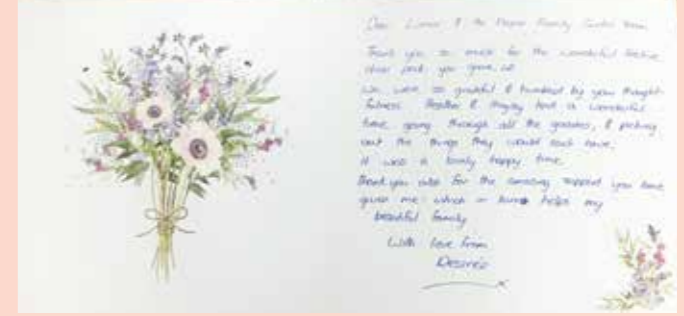 Dear & the Family Centre team
Thank you so much for the wonderful festive
pack you gave us
We were so grateful & humbled by your thought-
fulness. Heather & had a wonderful
time going through all the goodies, & picking
out the things they would each have.
It was a lovely happy time.
Thank you also for the amazing support you have
given me which in turn helps my
beautiful family
With love from
Desirée